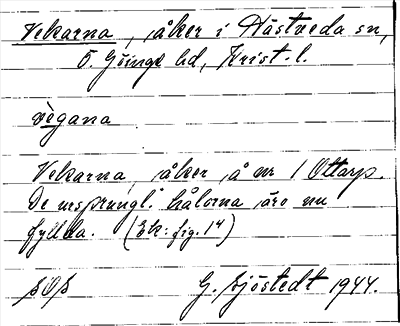 Vekarna, åker i Hästveda sn,
Ö. Göinge hd, Krist. l.
vègana
Vekarna, åker å nr 1 Ottarp.
De ursprungl. hålorna äro nu
fyllda. (Ek: fig. 14)
G. Sjöstedt 1944.